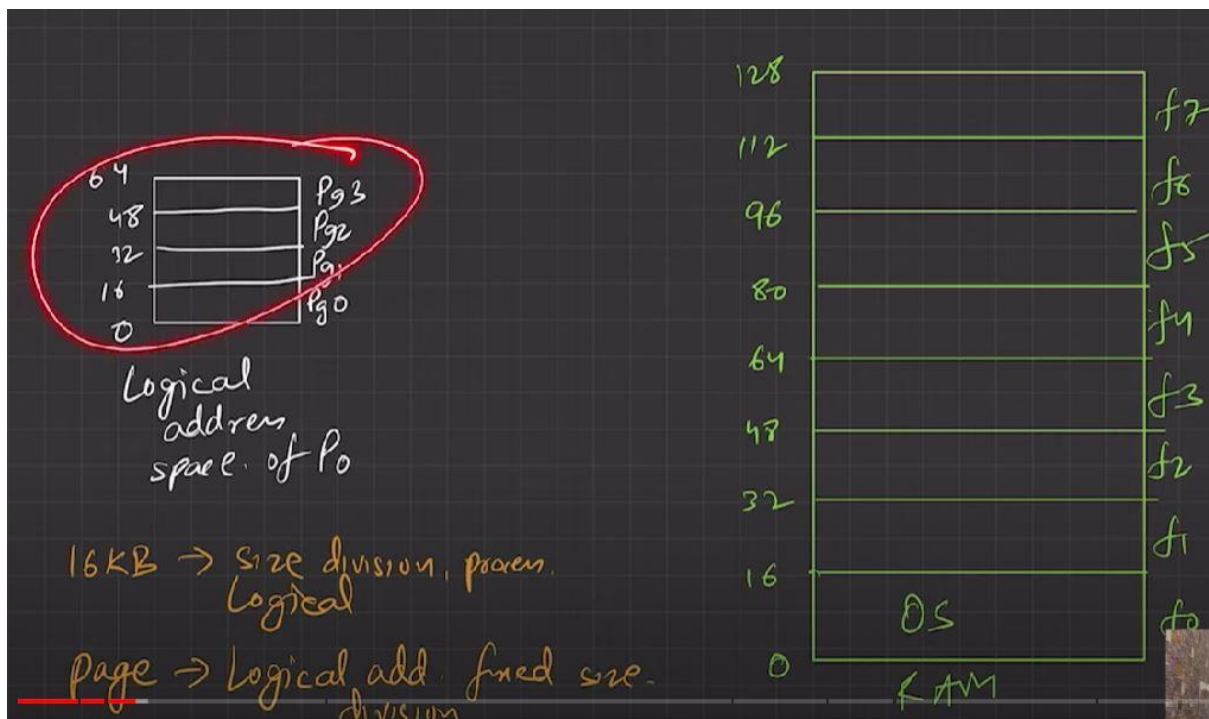 64
48
32
16
0
Pg3
Pg2
Pg1
Pg0
Logical
address
space. of P0
16KB → size division, process.
Logical
page → Logical add. fixed size.
division
128
112
96
80
64
48
32
16
0
f7
f6
f5
f4
f3
f2
f1
f0
OS
RAM